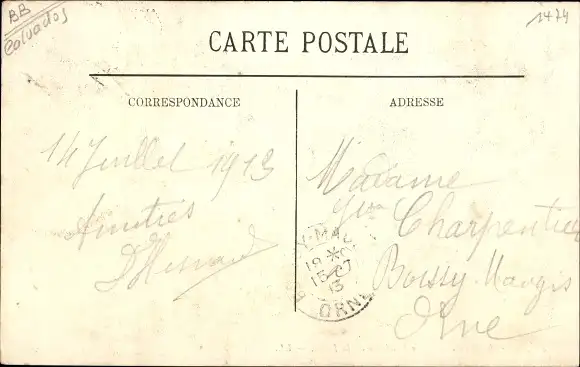 BB
Calvados
1474
CARTE POSTALE
CORRESPONDANCE
ADRESSE
14 Juillet 1913
Amitiés
Madame
Vve Charpentier
Boissy-Maugis
Orne
Y-MA
18 *
15-7
13
ORNE